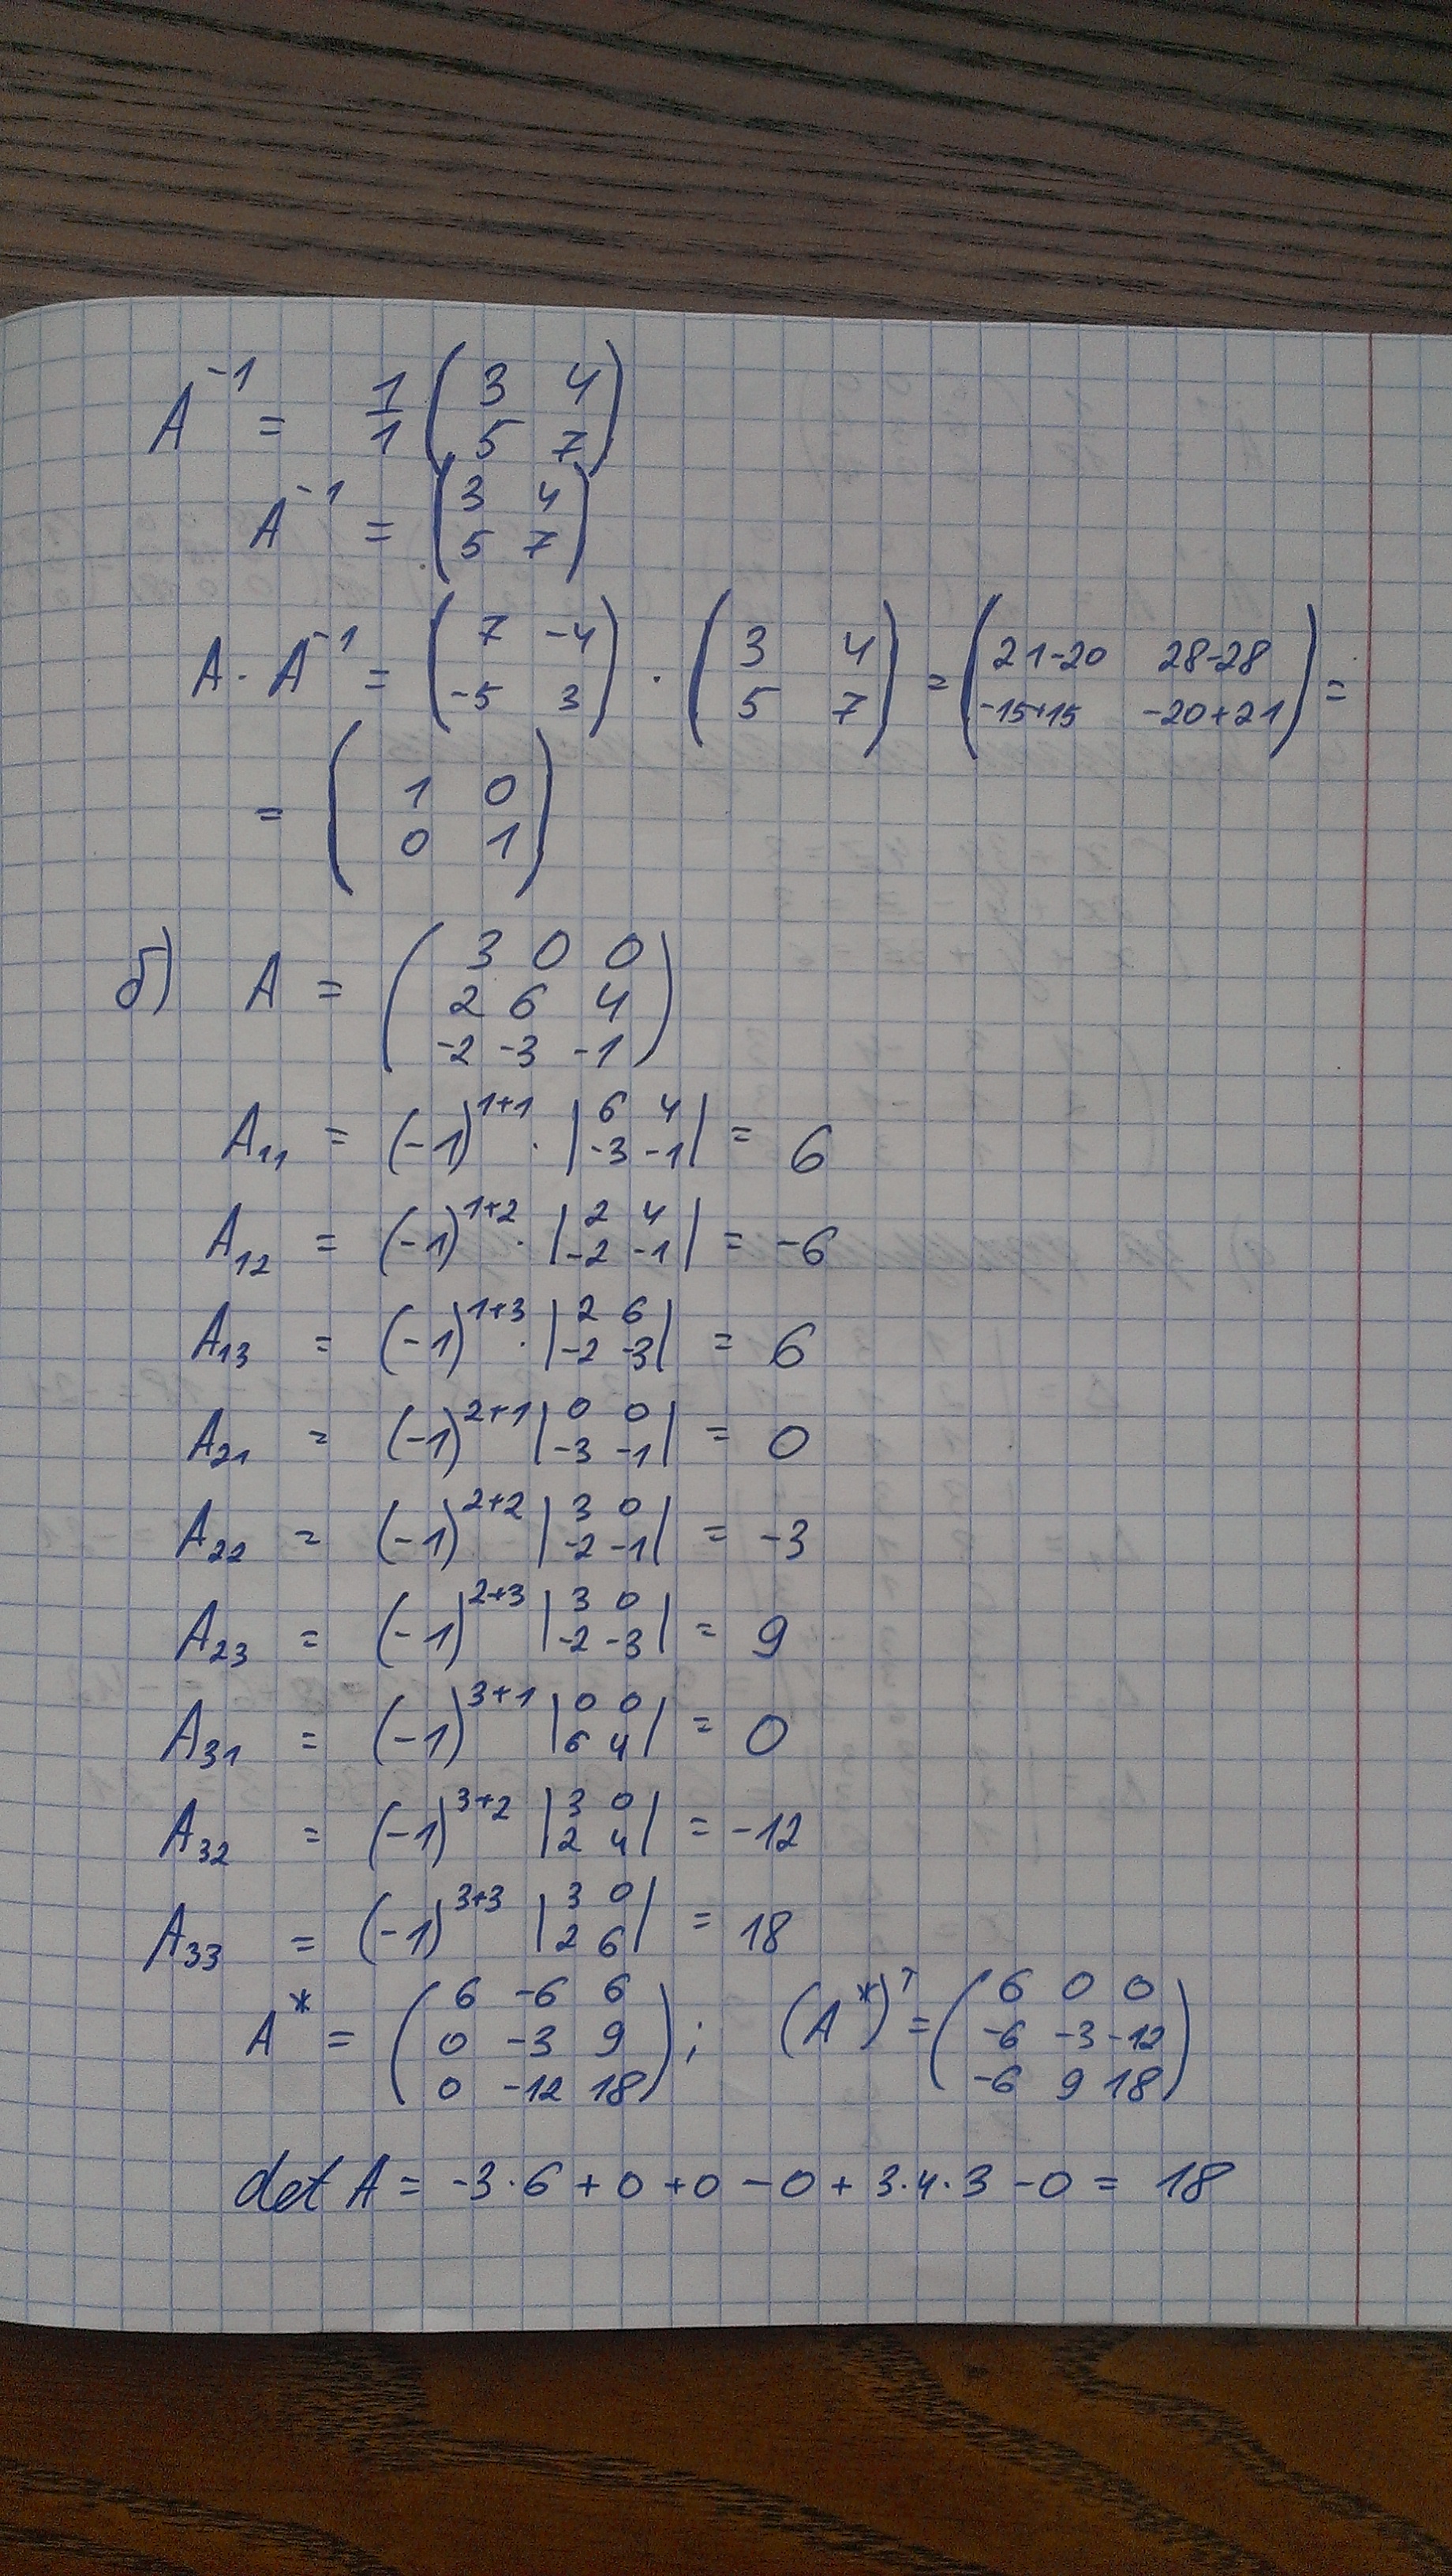 A⁻¹ = 1/1 (3 4; 5 7)
A⁻¹ = (3 4; 5 7)
A · A⁻¹ = (7 -4; -5 3) · (3 4; 5 7) = (21-20 28-28; -15+15 -20+21) =
= (1 0; 0 1)
б) A = (3 0 0; 2 6 4; -2 -3 -1)
A₁₁ = (-1)¹⁺¹ · |6 4; -3 -1| = 6
A₁₂ = (-1)¹⁺² · |2 4; -2 -1| = -6
A₁₃ = (-1)¹⁺³ · |2 6; -2 -3| = 6
A₂₁ = (-1)²⁺¹ |0 0; -3 -1| = 0
A₂₂ = (-1)²⁺² |3 0; -2 -1| = -3
A₂₃ = (-1)²⁺³ |3 0; -2 -3| = 9
A₃₁ = (-1)³⁺¹ |0 0; 6 4| = 0
A₃₂ = (-1)³⁺² |3 0; 2 4| = -12
A₃₃ = (-1)³⁺³ |3 0; 2 6| = 18
A* = (6 -6 6; 0 -3 9; 0 -12 18); (A*)ᵀ = (6 0 0; -6 -3 -12; -6 9 18)
det A = -3·6 + 0 + 0 - 0 + 3·4·3 - 0 = 18